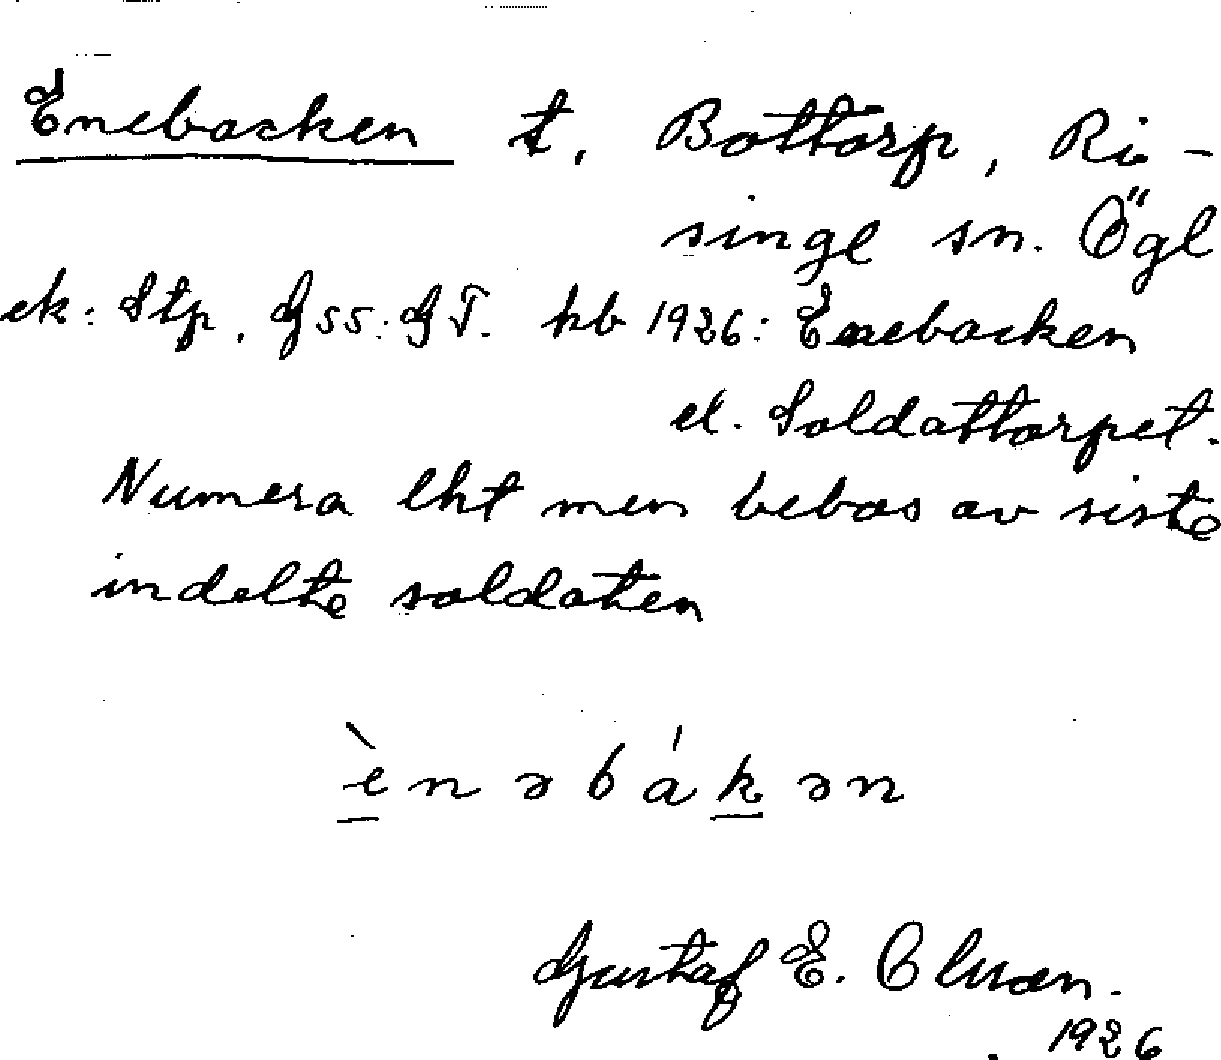 Enebacken t. Bottorp, Ri-
singe sn. Ögl
ek: Stp. G55: GT. hb 1926: Enebacken
el. Soldattorpet.
Numera lht men bebos av siste
indelte soldaten
ènəbákən
Gustaf E. Olsson.
1926